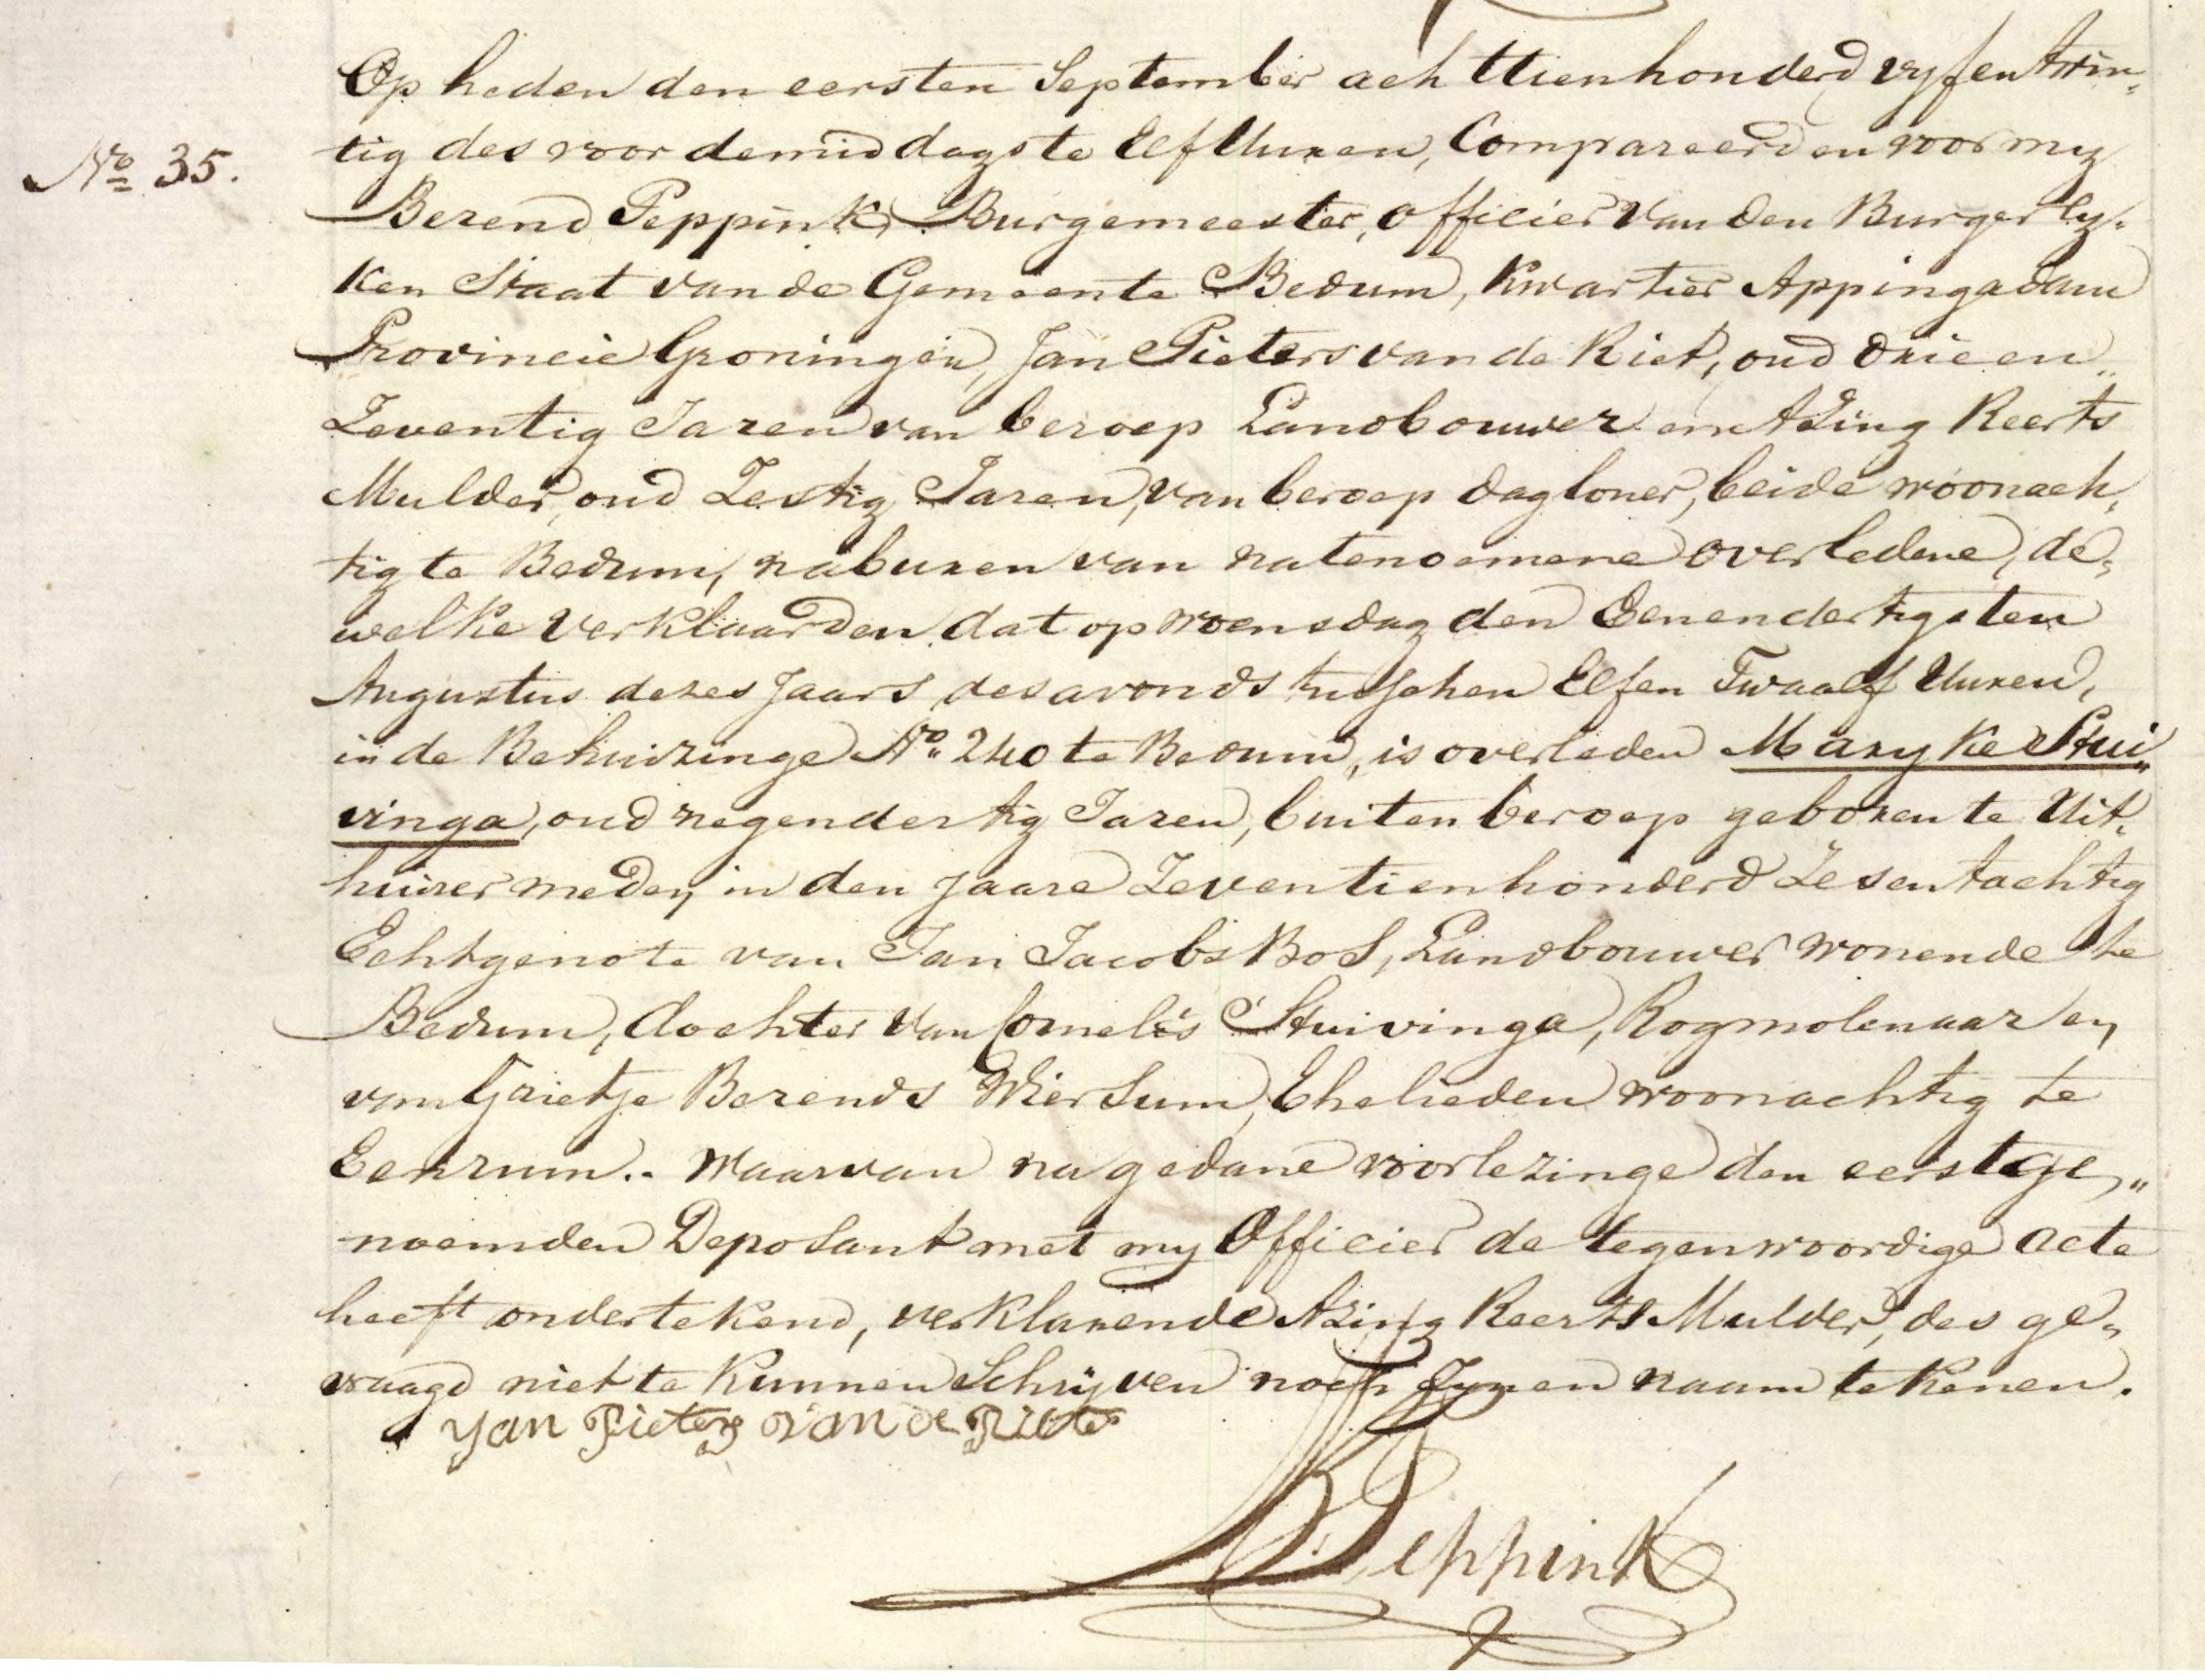 Op heden den eersten September achttienhonderd vyfentwin„
tig des voordemiddags te Elf Uuren, Compareerden voor my
No 35.
Berend Peppink, Burgemeester, Officier van den Burgerly„
ken Staat van de Gemeente Bedum, Kwartier Appingadam
Provincie Groningen, Jan Pieters van de Riet, oud drie en„
Zeventig Jaren van beroep Landbouwer en Azing Reerts
Mulder, oud Zestig Jaren, van beroep dagloner, beide woonach„
tig te Bedum, naburen van natenoemene overledene, de„
welke verklaarden dat op woensdag den Eenendertigsten
Augustus dezes Jaars des avonds tusschen Elf en Twaalf Uuren,
in de Behuizinge No 240 te Bedum, is overleden Maryke Stui„
vinga, oud negendertig Jaren, buiten beroep geboren te Uit„
huizermeden in den Jaare Zeventienhonderd Zesentachtig
Echtgenote van Jan Jacobs Bos, Landbouwer wonende te
Bedum, dochter van Cornelis Stuivinga, Rogmolenaar en
van Grietje Berends Wiersum, Ehelieden woonachtig te
Eenrum.. Waarvan na gedane voorlezinge den eerstge„
noemden Deposant met my Officier de tegenwoordige acte
heeft ondertekend, verklarende Azing Reerts Mulder, des ge„
vraagd niet te kunnen Schryven noch Zynen naam tekenen.
Jan Pieters van de Riet
B Peppink